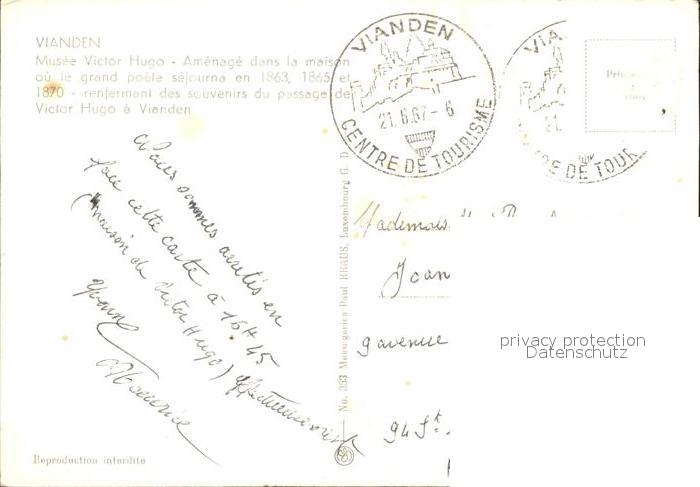 VIANDEN
Musée Victor Hugo - Aménagé dans la maison
où le grand poète séjourna en 1863, 1865 et
1870 - renfermant des souvenirs du passage de
Victor Hugo à Vianden
VIANDEN
21.6.67-6
CENTRE DE TOURISME
VIA
21.
RE DE TOUR
Nous sommes arretés en
face cette carte à 16H45
(maison de Victor Hugo)
Maurice
No. 333 Messageries Paul KRAUS, Luxembourg G. D.
Mademois
Joan
9 avenue
94 St.
privacy protection
Datenschutz
Reproduction interdite